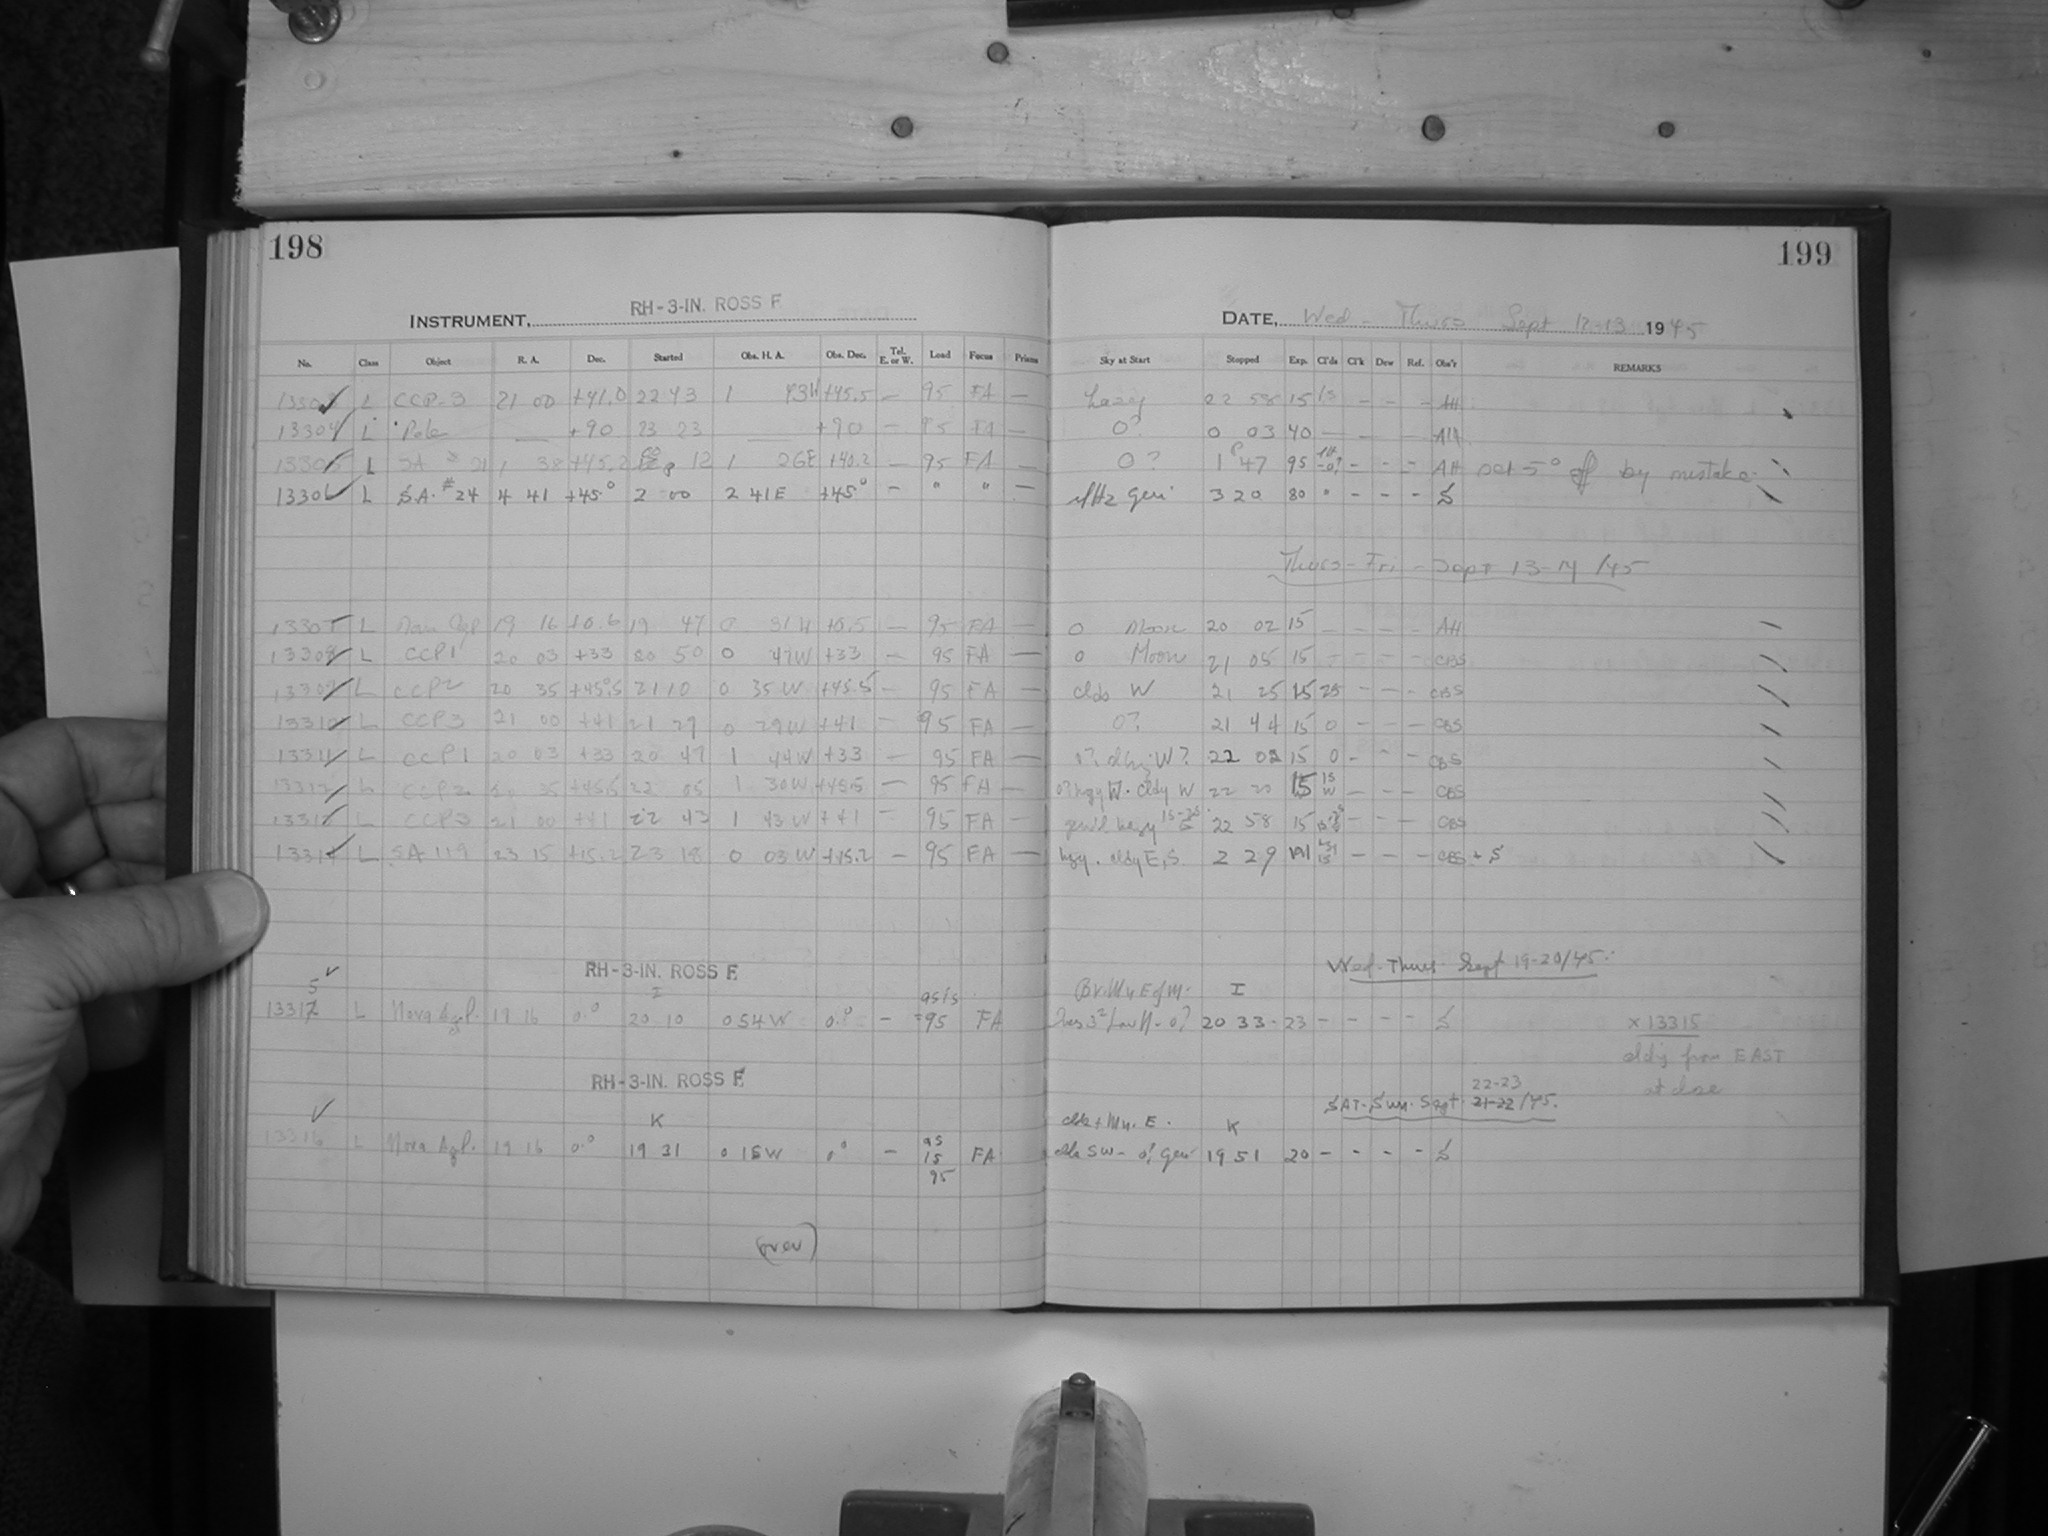 198
199
INSTRUMENT, RH-3-IN. ROSS F.
DATE, Wed - Thurs Sept 12-13 1945
No. Class Object R. A. Dec. Started Obs. H. A. Obs. Dec. Tel. E. or W. Load Focus Prisms Sky at Start Stopped Exp. Cl'ds Cl'k Dew Ref. Obs'r REMARKS
L CCP-3 21 00 +41.0 22 43 1 43W +45.5 — 95 FA — hazy 22 58 15 — — — AH
13304 L Pole — +90 23 23 — +90 — 95 FA — 0? 0 03 40 — — — — AH
13305 L SA # 21 1 38 +45.2 12 1 26E +40.2 — 95 FA — 0? 1 47 95 — — — AH set 5° off by mistake
13306 L S.A. #24 4 41 +45° 2 00 2 41E +45° — " " — Hz Gen 3 20 80 " - - - S
Thurs-Fri - Sept 13-14 /45
13307 L 19 16 +0.6 19 47 0 31W +0.5 — 95 FA — 0 Moon 20 02 15 — — — — AH
13308 L CCP1 20 03 +33 20 50 0 47W +33 — 95 FA — 0 Moon 21 05 15 - - - - CBS
13309 L CCP2 20 35 +45.5 21 10 0 35W +45.5 — 95 FA — clds W 21 25 15 25 - - - CBS
13310 L CCP3 21 00 +41 21 29 0 29W +41 — 95 FA — 0? 21 44 15 0 - - - CBS
13311 L CCP1 20 03 +33 20 47 1 44W +33 — 95 FA — W? 22 02 15 0 - - - CBS
13312 L CCP2 20 35 +45.5 22 05 1 30W +45.5 — 95 FA — 0? hzy W. cldy W 22 20 15 15 W — — — CBS
13313 L CCP3 21 00 +41 22 43 1 43W +41 — 95 FA — gen'l hazy 22 58 15 — — — CBS
13314 L SA 119 23 15 +15.2 23 18 0 03W +15.2 — 95 FA — hzy. cldy E, S. 2 29 191 — — — CBS + S
RH-3-IN. ROSS F.
Wed-Thurs. Sept 19-20/45.
5 I 95/5 Br. Mn E of M. I
13317 L Nova Aql. 19 16 0.° 20 10 0 54W 0.° — 95 FA 20 33. 23 - - - - S x 13315
cldy from EAST
at close
RH-3-IN. ROSS F.
22-23
SAT-Sun. Sept. 21-22/45.
K clds + Mn. E. K
13316 L Nova Aql. 19 16 0.° 19 31 0 15W 0° — 95 15 95 FA SW - 19 51 20 - - - - S
(over)